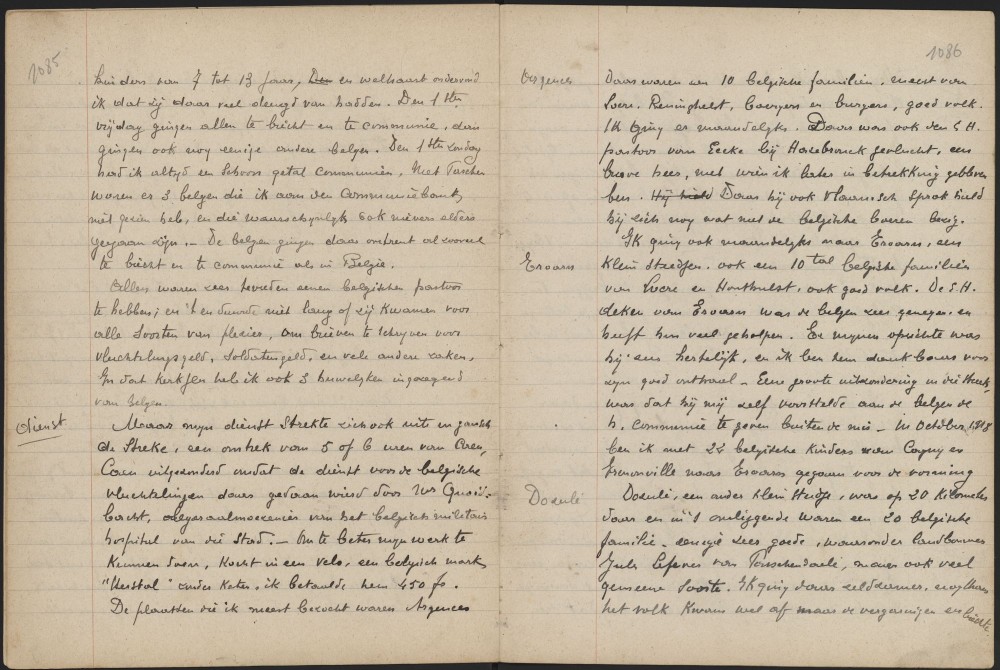 1085
kinders van 7 tot 13 jaar, Den en welhaast ondervond
ik dat zij daar veel deugd van hadden. Den 1sten
vrijdag gingen allen te biecht en te communie, dan
gingen ook nog eenige andere belgen. Den 1sten zondag
had ik altijd en schoon getal communien. Met Paschen
waren er 3 belgen die ik aan den Communiebank
niet gezien heb, en die waarschynlyk ook nievers elders
gegaan zijn. - De belgen gingen daar omtrent al zooveel
te biecht en te communie als in Belgie.
Allen waren zeer tevreden eenen belgischen pastoor
te hebben; en 't en duurde niet lang of zij kwamen voor
alle soorten van plezier, om brieven te schryven voor
vluchtelingsgeld, soldatengeld, en vele andere zaken,
In dat kerksken heb ik ook 3 huwelyken ingezegend
van belgen.
Dienst
Maar myn dienst strekte zich ook uit in gansch
de streke, een omtrek van 5 of 6 uren van Caen,
Caen uitgezonderd omdat de dienst voor de belgische
vluchtelingen daar gedaan wierd door Mr Quaid-
bacht, algesaalmoezenier van het belgisch militair
hospital van die stad. - Om te beter myn werk te
kunnen doen, kocht in een velo, een belgisch merk
"Herstal" onder keten, ik betaalde hem 450 fr.
De plaatsen die ik meest bezocht waren Argences
1086
Argences
Daar waren een 10 belgische familien, meest van
Locre, Reninghelst, boeren en burgers, goed volk.
Ik ging er maandelyks. Daar was ook den E. H.
pastoor van Eecke bij Hazebrouck gevlucht, een
brave heer, met wien ik later in betrekking gebleven
ben. Hij hield Daar hij ook Vlaamsch sprak hield
hij zich nog wat met de belgische boeren bezig.
Ik ging ook maandelyks naar Evoarn, een
Evoarn
klein stedjen, ook een 10tal belgische familien
van Locre en Houthulst, ook goed volk. De E. H.
deken van Evoarn was de belgen zeer genegen en
heeft hen veel geholpen. Te mynen opzichte was
hij eens hertelijk, en ik ben hem dankbaar voor
zyn goed onthaal - Eene groote uitzondering in die streek,
was dat hij mij zelf voorstelde aan de belgen de
h. Communie te geven buiten de mis - In October 1918
ben ik met 22 belgische kinders van Cagny en
Frenouville naar Evoarn gegaan voor de vorming
Dozulé
Dozulé, een ander klein stedje, was op 20 kilometer
daar en in 't omliggende waren een 20 belgische
familie - eenige zeer goede, waaronder landbouwer
Jules Lefever van Passchendaele, maar ook veel
gemeene soorte. Ik ging daar zeldzamer, nogthans
het volk kwam wel af naar de vergaringen en biecht.